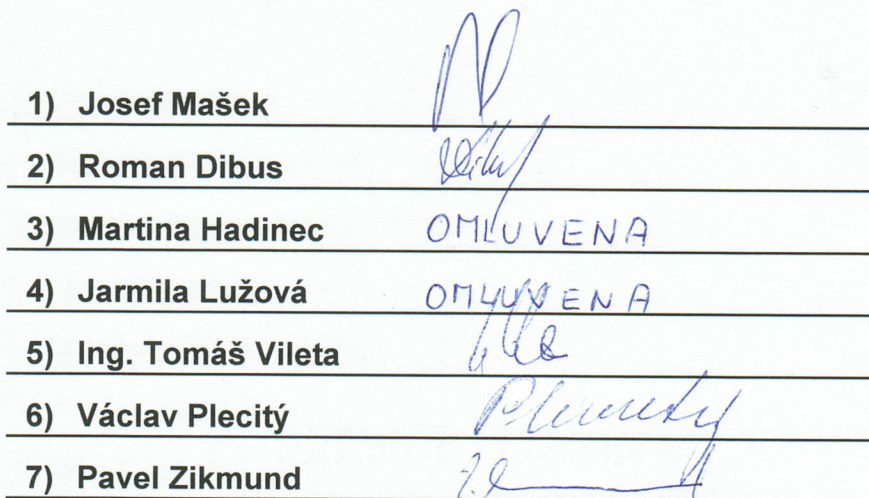 1) Josef Mašek
2) Roman Dibus
3) Martina Hadinec OMLUVENA
4) Jarmila Lužová OMLUVENA
5) Ing. Tomáš Vileta
6) Václav Plecitý Plecitý
7) Pavel Zikmund